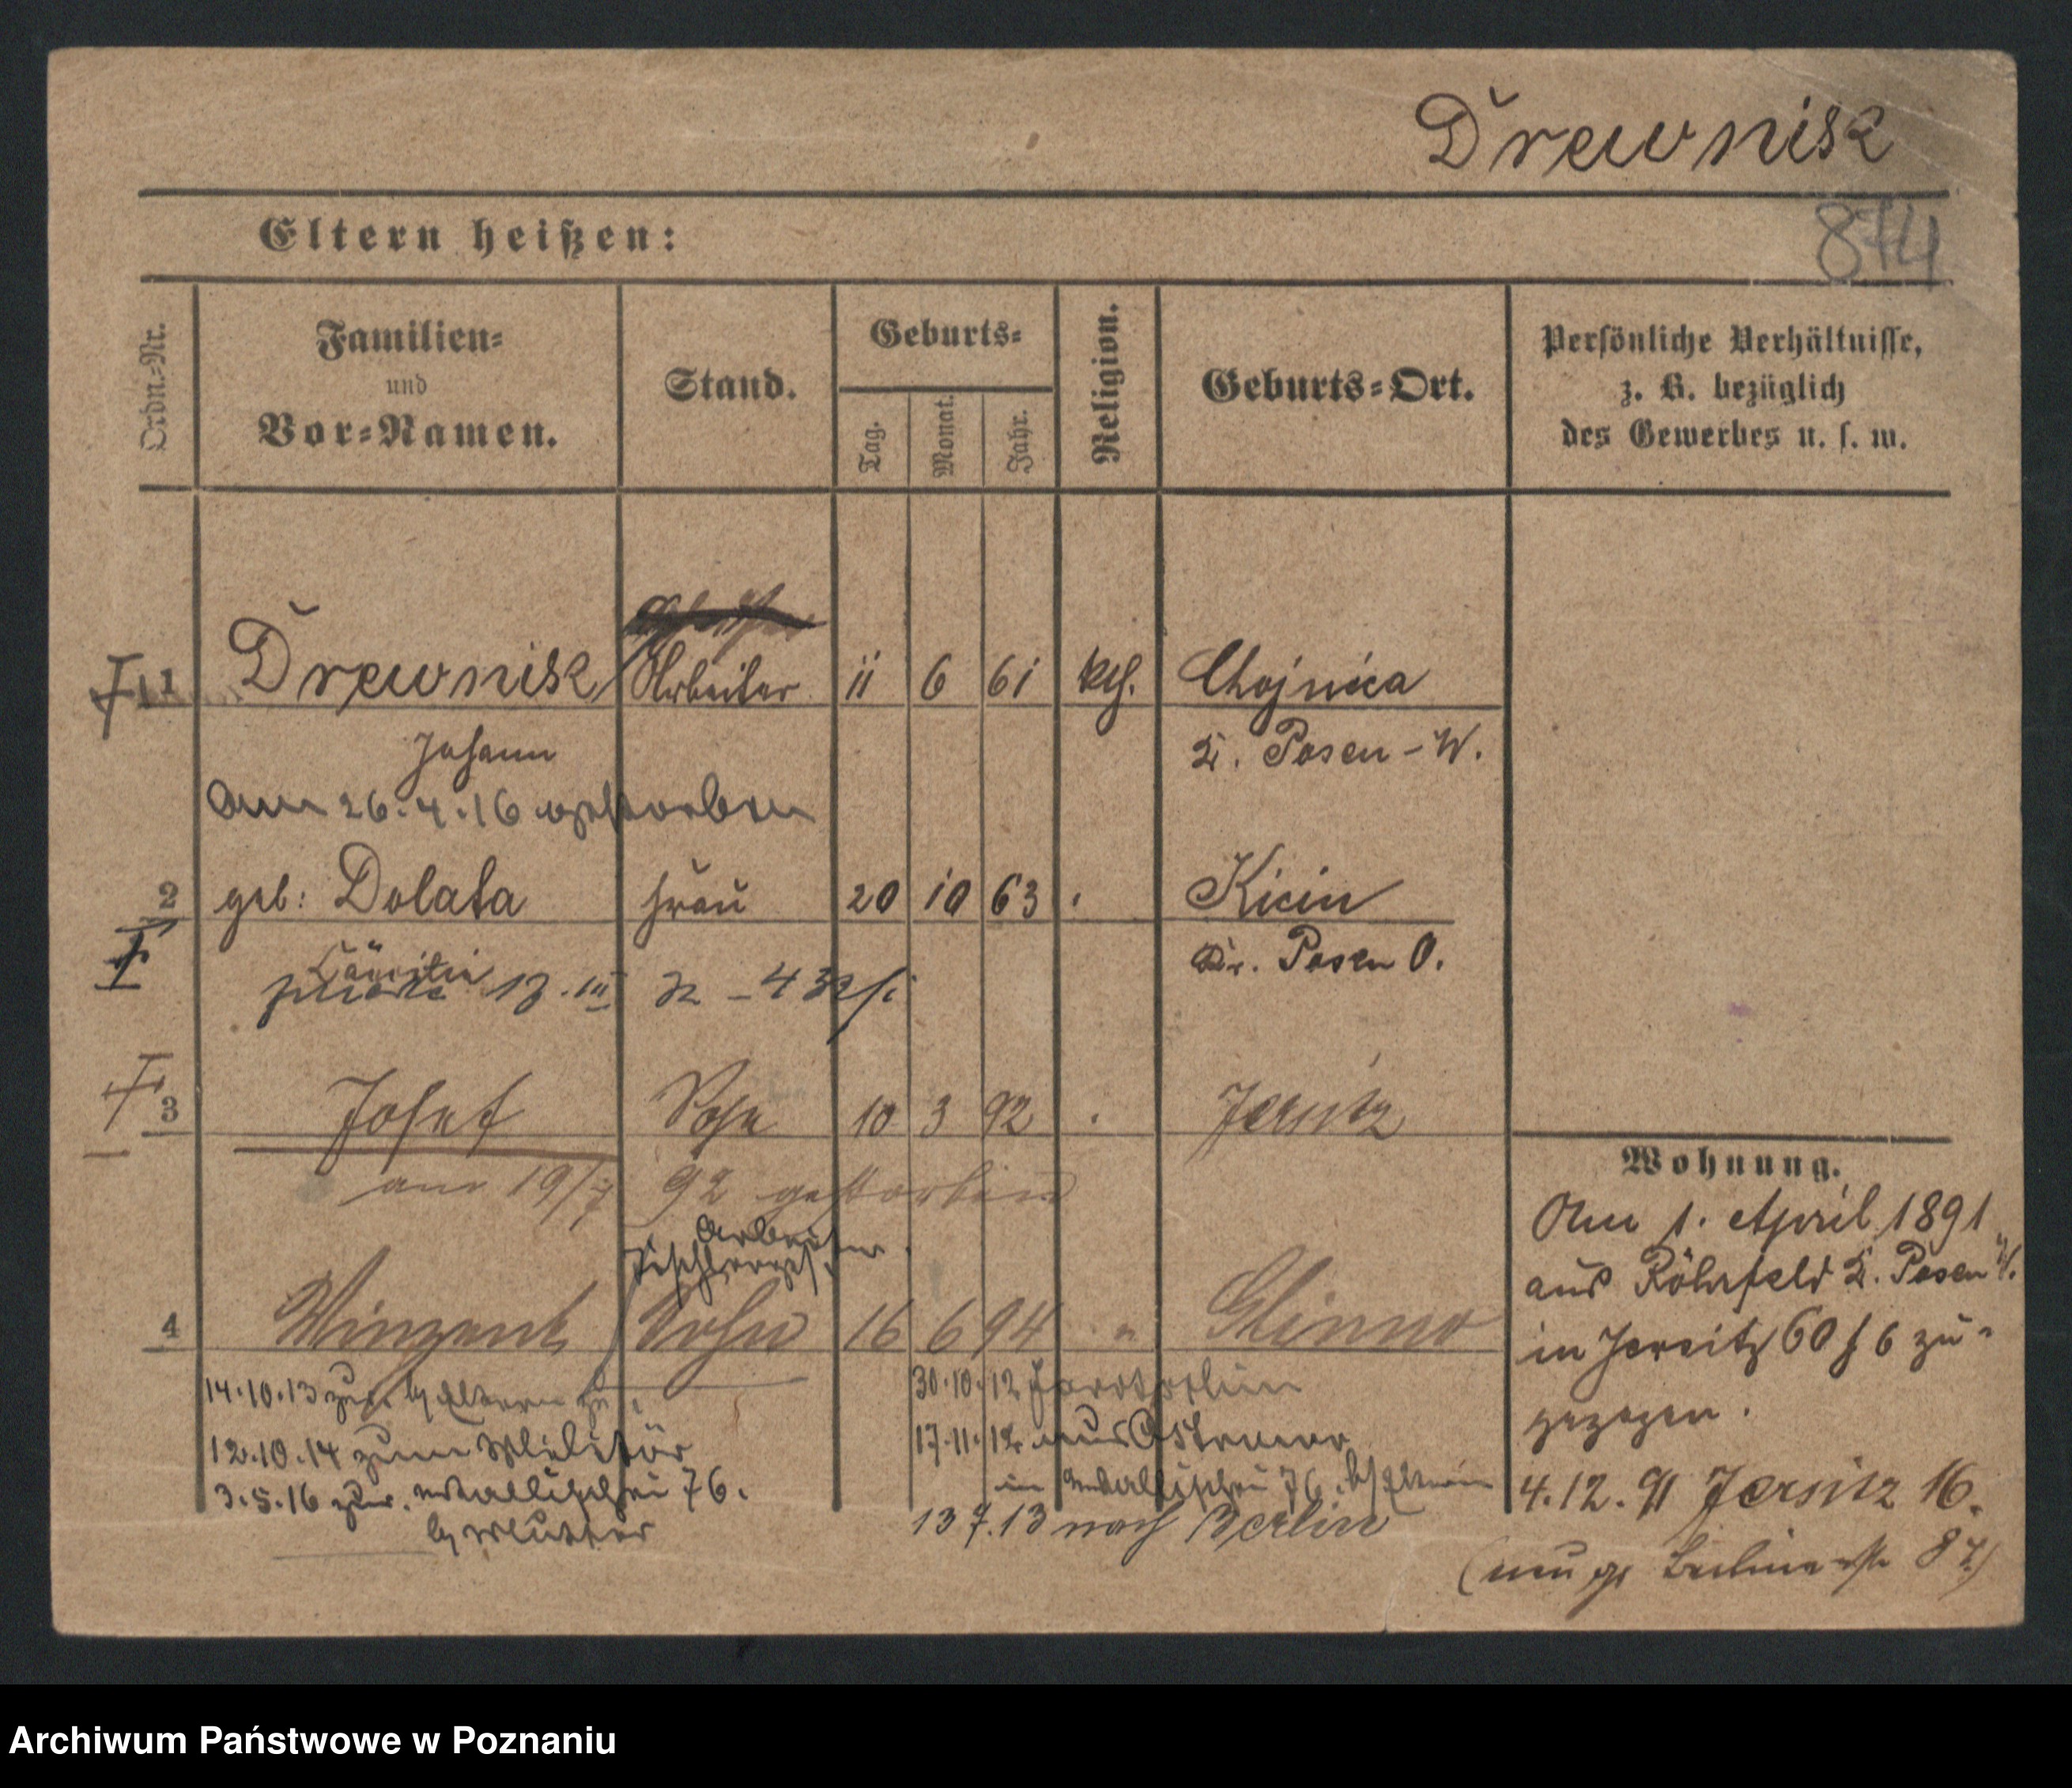 Drewnisk
874
Eltern heißen:
Ordn.-Nr.
Familien-
und
Vor-Namen.
Stand.
Geburts-
Tag.
Monat.
Jahr.
Religion.
Geburts-Ort.
Persönliche Verhältnisse,
z. B. bezüglich
des Gewerbes u. s. w.
1 Drewnisk Arbeiter 11 6 61 kth. Chojnica
Johann
K. Posen-W.
am 26.4.16 gestorben
2 geb: Dolata Frau 20 10 63 Kicin
Cäcilie
Kr. Posen O.
3 Josef Sohn 10 3 92 Jersitz
am 19/7 92 gestorben
Arbeiter
Tischlerges.
4 Winzent Sohn 16 6 94 " Glinno
14.10.13 zur. b/ Eltern
12.10.14 zum Militär
3.5.16 zur. Wallischei 76.
b/ Mutter
30.10.12 Jarotschin
17.11.12 aus Ostrowo
in Wallischei 76. b/ Eltern
13 7.13 nach Berlin
Wohnung.
Am 1. April 1891
aus Röhrfeld K. Posen W.
in Jersitz 60 f 6 zu-
gezogen.
4.12.91 Jersitz 16.
Archiwum Państwowe w Poznaniu